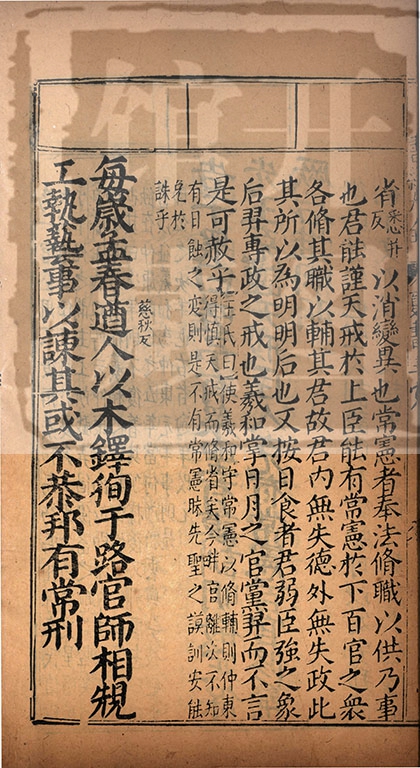 省悉井反以消變異也常憲者奉法脩職以供乃事
也君能謹天戒於上臣能有常憲於下百官之衆
各脩其職以輔其君故君内無失德外無失政此
其所以為明明后也又按日食者君弱臣強之象
后羿專政之戒也羲和掌日月之官黨羿而不言
是可赦乎王氏曰使羲和守常憲以脩輔則仲康
得慎天戒而脩省矣今畔官離次不知
有日蝕之變則是不有常憲昧先聖之謨訓安能
免於
誅乎
每歲孟春遒慈秋反人以木鐸徇于路官師相規
工執藝事以諫其或不恭邦有常刑